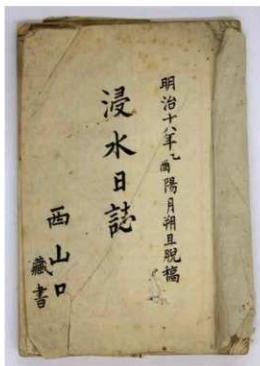 明治十八年乙酉陽月朔旦脱稿
浸水日誌
西山口
蔵書